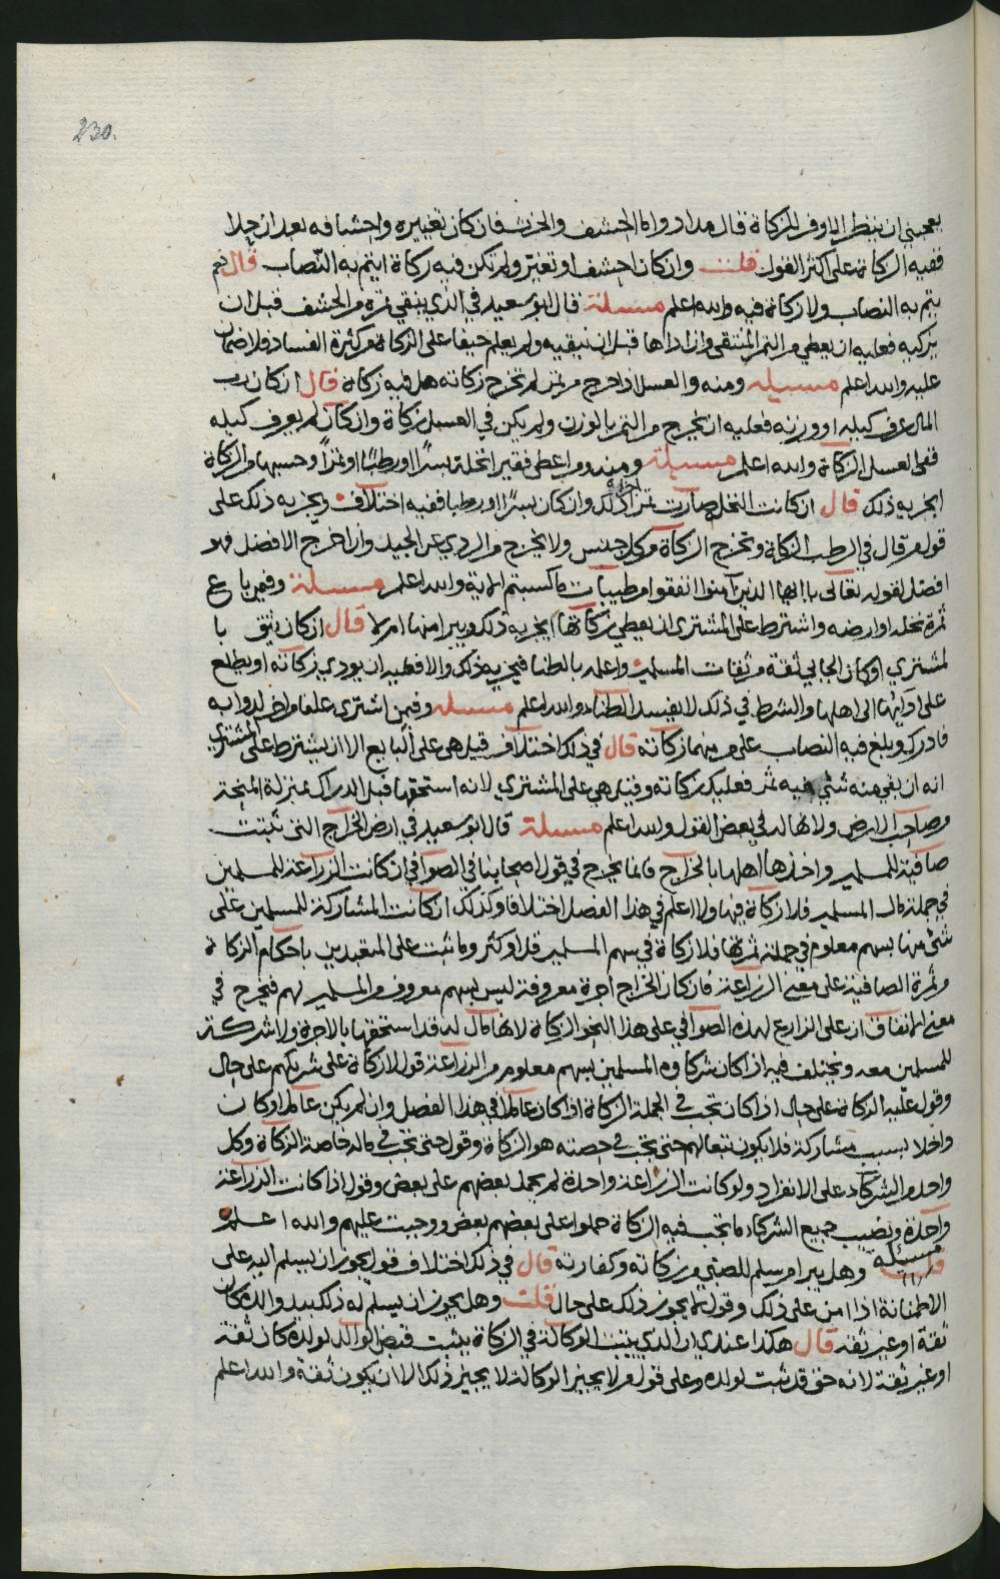 230.
يعجبني ان ينظر الاوفر للزكاة قال مداد واما الحشف والخرث فان كان تغييره واحشافه بعد ان جلا
ففيه الزكاة على اكثر القول قلت وان كان احشف او تغير ولم تكن فيه زكاة ايتم به النصاب قال نعم
يتم به النصاب ولا زكاة فيه والله اعلم مسئلة قال ابو سعيد في الذي ينقي تمره من الحشف قبل ان
يزكيه فعليه ان يعطي من التمر المنتقى وان اداها قبل ان ينقيه ولم يعلم حيفا على الزكاة من كثرة الفساد فلا ضمان
عليه والله اعلم مسئلة ومنه والعسل اذا خرج من تمر لم تخرج زكاته هل فيه زكاة قال ان كان رب
المال عرف كيله او وزنه فعليه ان يخرج من التمر بالوزن ولم يكن في العسل زكاة وان كان لم يعرف كيله
ففي العسل الزكاة والله اعلم مسئلة ومنه ومن اعطى فقيرا نخلة بسرا او رطبا او تمرا وحسبها من الزكاة
ايجزيه ذلك قال ان كانت النخل صارت تمرا اجزاه ذلك وان كان بسرا او رطبا ففيه اختلاف ويجزيه ذلك على
قول من قال في الرطب الزكاة وتخرج الزكاة من كل جنس ولا يخرج من الردي عن الجيد وان اخرج الافضل فهو
افضل لقوله تعالى يا ايها الذين آمنوا انفقوا من طيبات ما كسبتم الاية والله اعلم مسئلة وفيمن باع
ثمرة نخله او ارضه واشترط على المشتري ان يعطي زكاتها ايجزيه ذلك ويبرا منها ام لا قال ان كان يثق با
لمشتري او كان الجابي ثقة من ثقات المسلمين واعلمه بالطنا فيجزيه ذلك والا فعليه ان يودي زكاته او يطلع
على ادآئها الى اهلها والشرط في ذلك لا يفسد الطناء والله اعلم مسئلة وفيمن اشترى علفا من ارض لدوابه
فادرك وبلغ فيه النصاب على من منهما زكاته قال في ذلك اختلاف قيل هي على البايع الا ان يشترط على المشتري
انه ان بقي منه شئ فيه ثمر فعليك زكاته وقيل هي على المشتري لانه استحقها قبل الدراك بمنزلة المنحة
من صاحب الارض ولانها له في بعض القول والله اعلم مسئلة قال ابو سعيد في ارض الخراج التي ثبتت
صافية للمسلمين واخذها اهلها بالخراج فانما يخرج في قول اصحابنا في الصوافي ان كانت الزراعة للمسلمين
في جملة مال المسلمين فلا زكاة فيها ولا اعلم في هذا الفصل اختلافا وكذلك ان كانت المشاركة للمسلمين على
شئ منها بسهم معلوم في جملة ثمرتها فلا زكاة في سهم المسلمين قل او كثر وما ثبت على المتعبدين باحكام الزكاة
من ثمرة الصافية على معنى الزراعة فان كان الخراج اجرة معروفة ليس بسهم معروف من المسلمين لهم فيخرج في
معنى الاتفاق ان على الزارع لهذه الصوافي على هذا النحو الزكاة لانها مال له قد استحقها بالاجرة ولا شركة
للمسلمين معه ويختلف فيه اذا كان شركاوه المسلمين بسهم معلوم من الزراعة قول لا زكاة على شريكهم على حال
وقول عليه الزكاة على حال اذا كان تجب في الجملة الزكاة اذا كان عاملا في هذا الفصل وان لم يكن عاملا وكان
داخلا بسبب مشاركة فلا يكون تبعا لهم حتى تجب في حصته هو الزكاة وقول حتى تجب في ماله خاصة الزكاة وكل
واحد من الشركاء على الانفراد ولو كانت الزراعة واحدة لم يحمل بعضهم على بعض وقول اذا كانت الزراعة
واحدة ونصيب جميع الشركاء ما تجب فيه الزكاة حملوا على بعضهم بعض ووجبت عليهم والله اعلم
مسئلة وهل يبرا من سلم للصبي من زكاته وكفارته قال في ذلك اختلاف قول يجوز ان يسلم اليه على
الاطمنانة اذا امن على ذلك وقول لا يجوز ذلك على حال قلت وهل يجوز ان يسلم له ذلك بيد والده كان
ثقة او غير ثقة قال هكذا عندي ان الذي يثبت الوكالة في الزكاة يثبت قبض الوالد لولده كان ثقة
او غير ثقة لانه حق قد ثبت لولده وعلى قول من لا يجيز الوكالة لا يجيز ذلك الا ان يكون ثقة والله اعلم